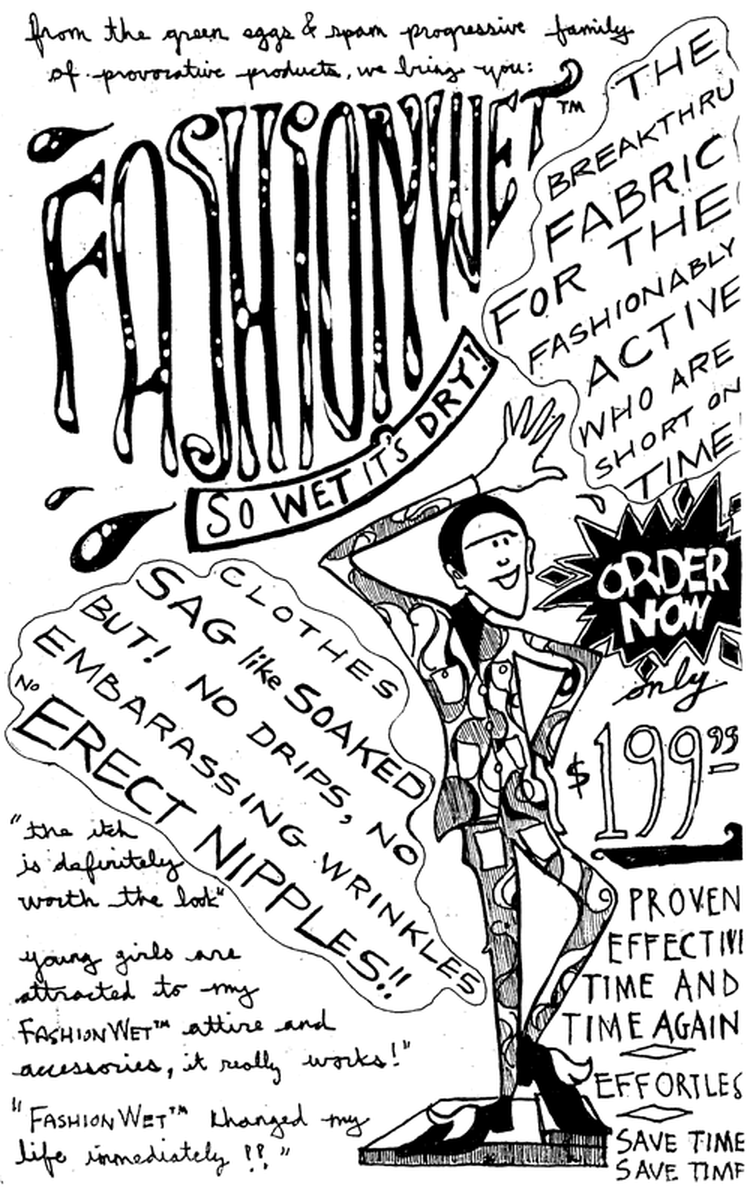 from the green eggs & spam progressive family
of provocative products, we bring you:
FASHIONWET™
SO WET IT'S DRY!
THE
BREAKTHRU
FABRIC
FOR THE
FASHIONABLY
ACTIVE
WHO ARE
SHORT ON
TIME
ORDER
NOW
only
$199.99
CLOTHES
SAG like SOAKED
BUT! NO DRIPS, NO
EMBARASSING WRINKLES
No
ERECT NIPPLES!!
"the itch
is definitely
worth the look"
young girls are
attracted to my
FASHIONWET™ attire and
accessories, it really works!"
"FASHIONWET™ khanged my
life immediately !?!"
PROVEN
EFFECTIVE
TIME AND
TIME AGAIN
EFFORTLES
SAVE TIME
SAVE TIME